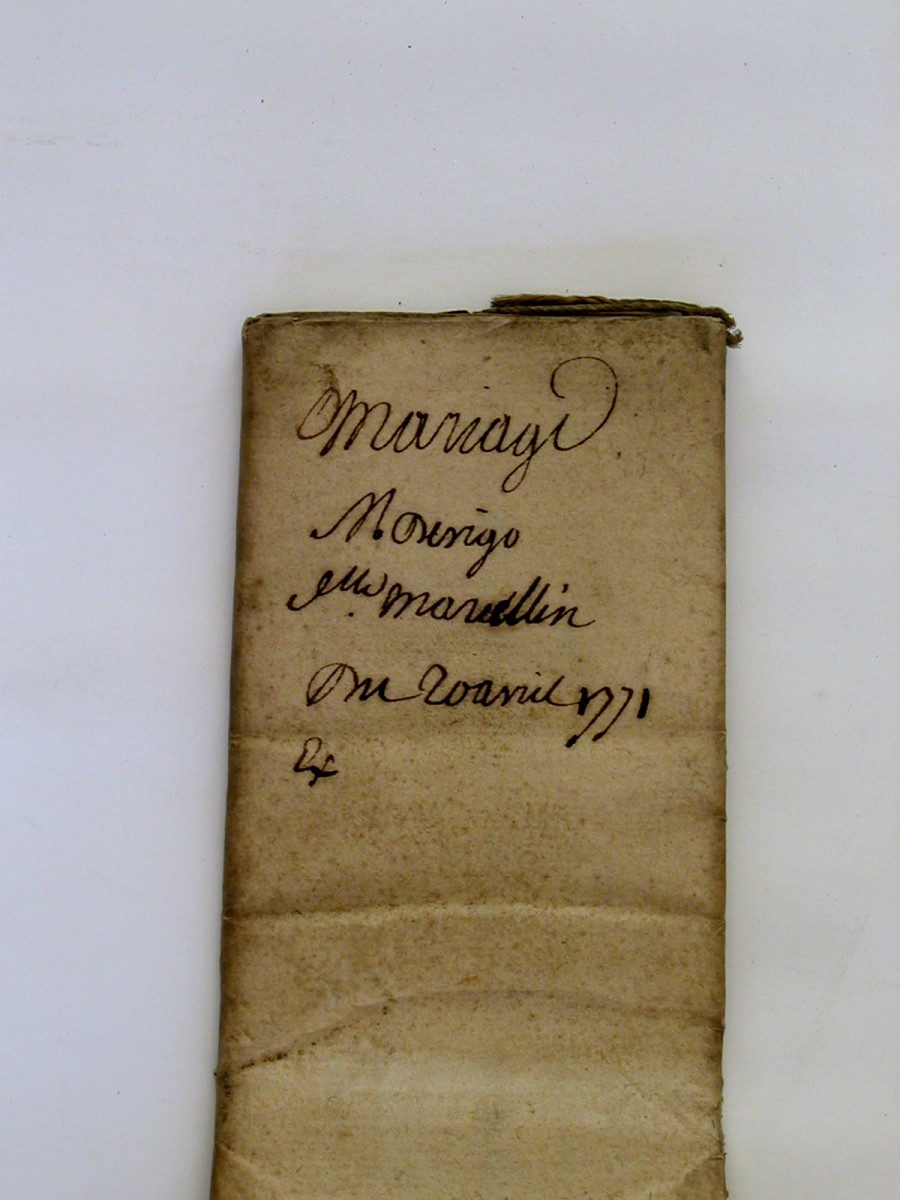 Mariage
M. Derigo
Mlle. Marcellin
Du 20 avril 1771
Ex